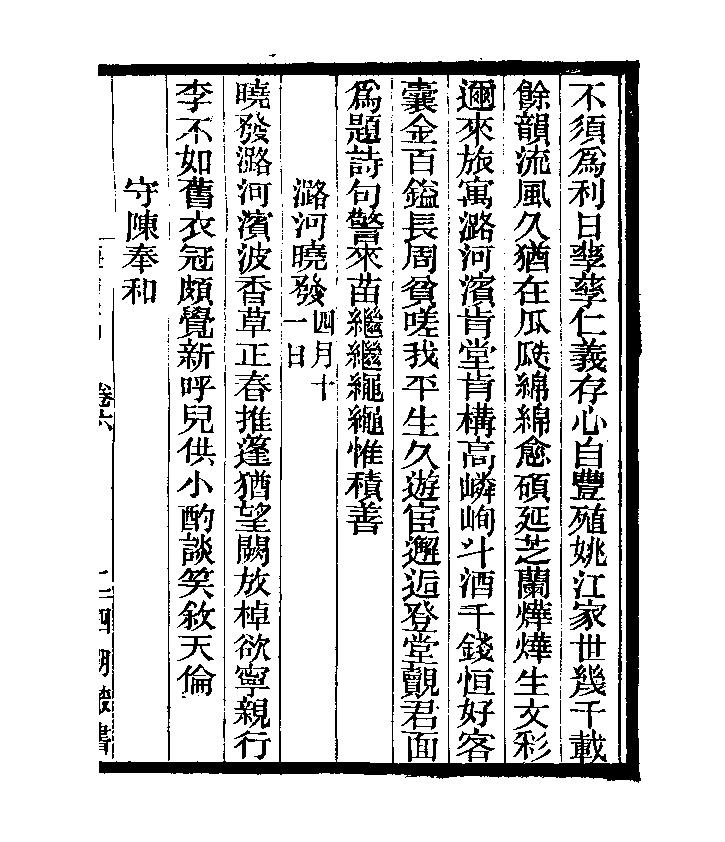 不須爲利日孳孳仁義存心自豐殖姚江家世幾千載
餘韻流風久猶在瓜瓞綿綿愈碩延芝蘭燁燁生文彩
邇來旅寓潞河濱肯堂肯構高嶙峋斗酒千錢恒好客
囊金百鎰長周貧嗟我平生久遊宦邂逅登堂覿君面
爲題詩句警來苗繼繼繩繩惟積善
潞河曉發四月十一日
曉發潞河濱波香草正春推篷猶望闕放棹欲寧親行
李不如舊衣冠頗覺新呼兒供小酌談笑敘天倫
守陳奉和
卷六
四明叢書